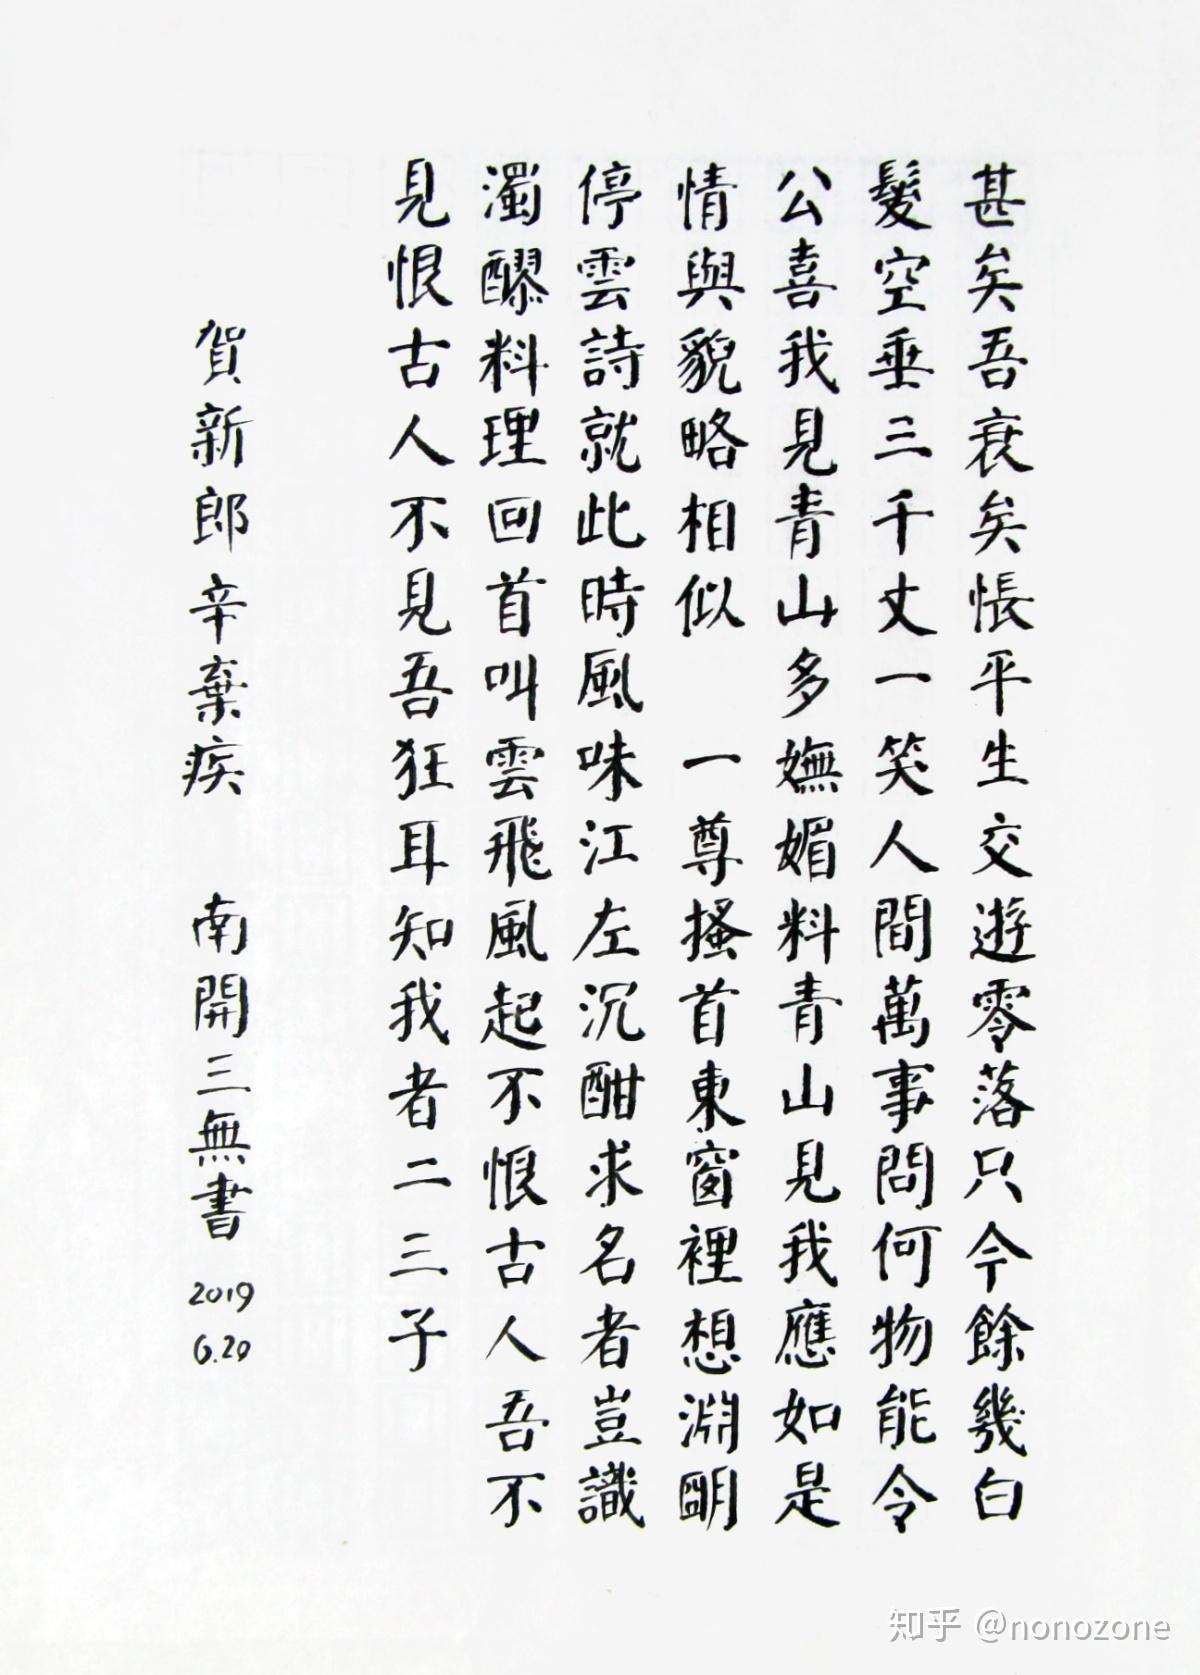 甚矣吾衰矣悵平生交遊零落只今餘幾白
髮空垂三千丈一笑人間萬事問何物能令
公喜我見青山多嫵媚料青山見我應如是
情與貌略相似 一尊搔首東窗裡想淵明
停雲詩就此時風味江左沉酣求名者豈識
濁醪料理回首叫雲飛風起不恨古人吾不
見恨古人不見吾狂耳知我者二三子
賀新郎辛棄疾 南開三無書 2019
6.20
知乎 @nonozone